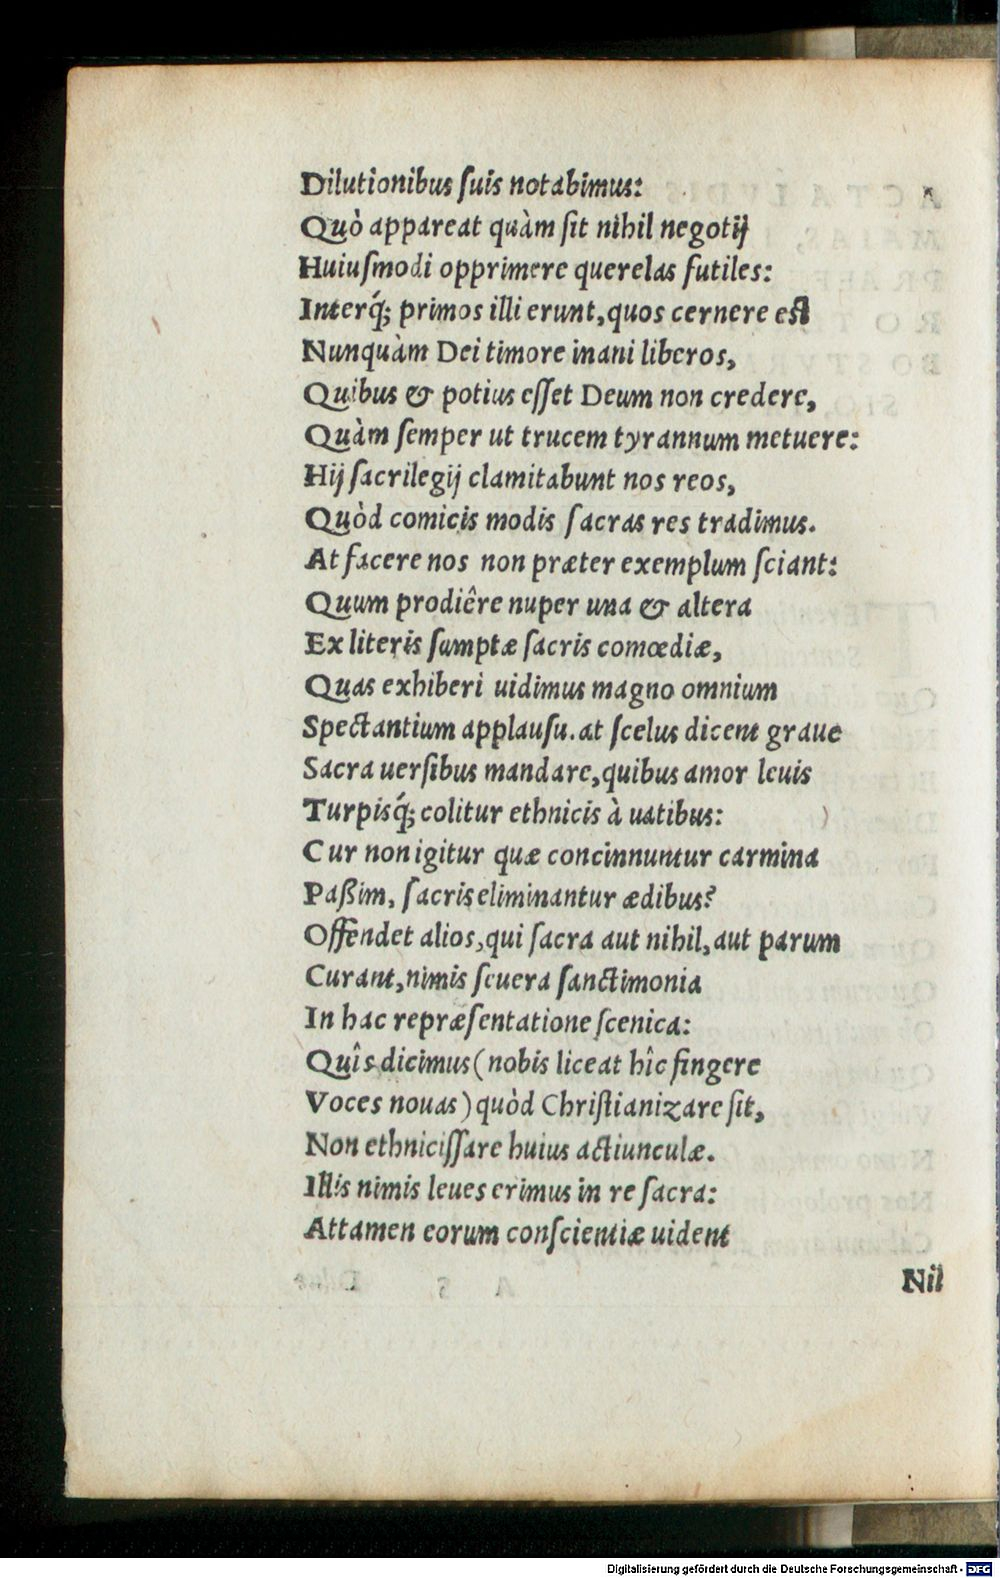 Dilutionibus ſuis notabimus:
Quò appareat quàm ſit nihil negotij
Huiuſmodi opprimere querelas futiles:
Interq́; primos illi erunt, quos cernere eſt
Nunquàm Dei timore inani liberos,
Quibus & potius eſſet Deum non credere,
Quàm ſemper ut trucem tyrannum metuere:
Hij ſacrilegij clamitabunt nos reos,
Quòd comicis modis ſacras res tradimus.
At facere nos non præter exemplum ſciant:
Quum prodiêre nuper una & altera
Ex literis ſumptæ ſacris comœdiæ,
Quas exhiberi uidimus magno omnium
Spectantium applauſu. at ſcelus dicent graue
Sacra uerſibus mandare, quibus amor leuis
Turpisq́; colitur ethnicis à uatibus:
Cur non igitur quæ concinnuntur carmina
Paßim, ſacris eliminantur ædibus?
Offendet alios, qui ſacra aut nihil, aut parum
Curant, nimis ſeuera ſanctimonia
In hac repræſentatione ſcenica:
Quîs dicimus (nobis liceat hîc fingere
Voces nouas) quòd Chriſtianizare ſit,
Non ethniciſſare huius actiunculæ.
Illis nimis leues erimus in re ſacra:
Attamen eorum conſcientiæ uident
Nil
Digitalisierung gefördert durch die Deutsche Forschungsgemeinschaft - DFG